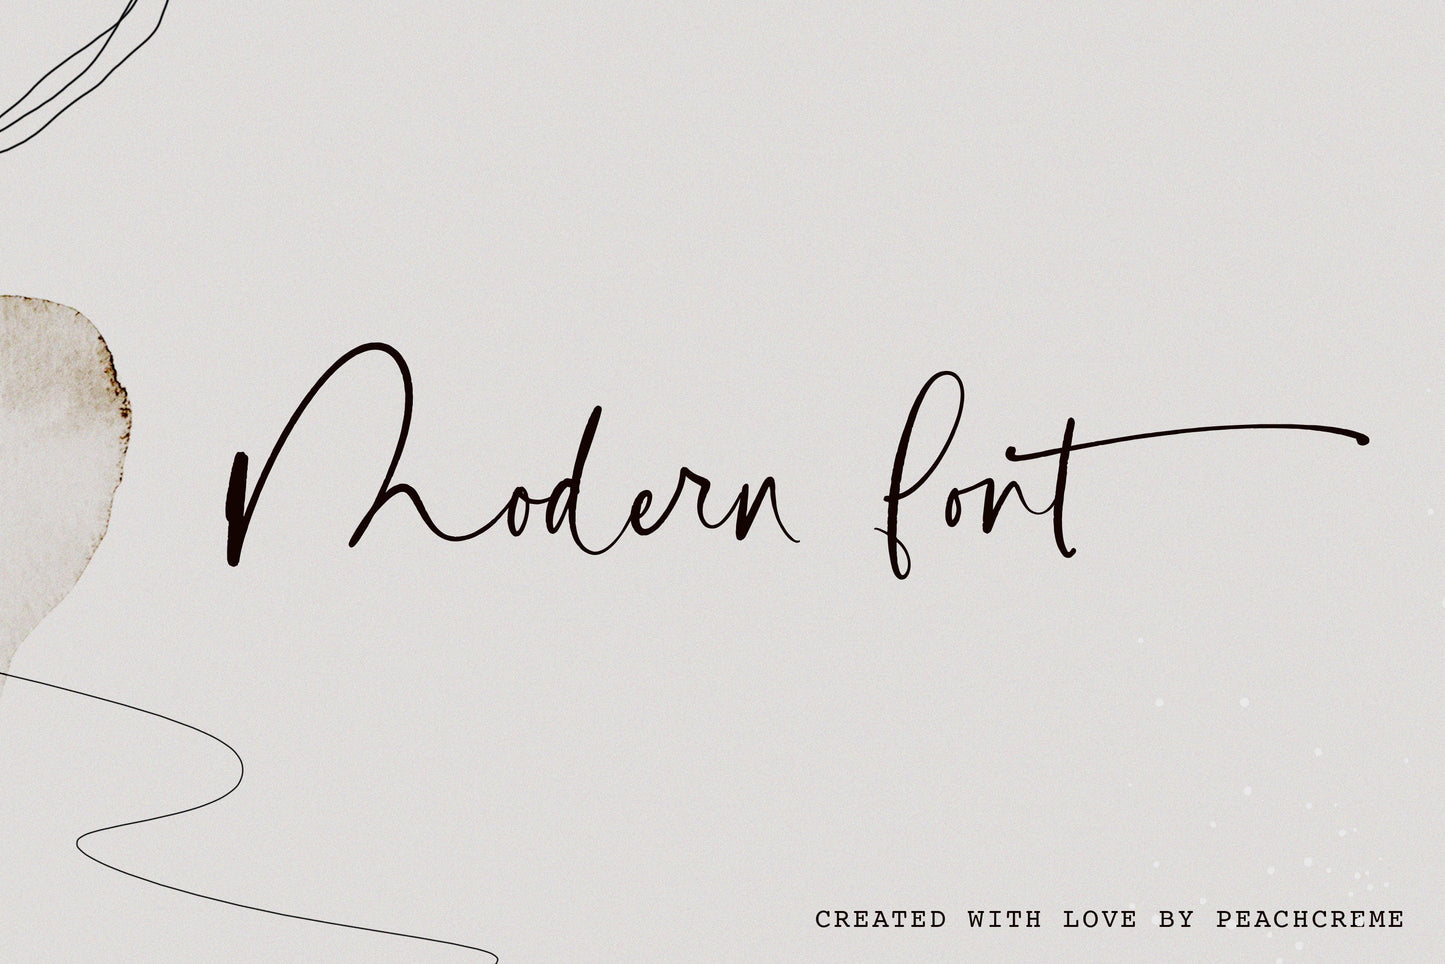 Modern font
CREATED WITH LOVE BY PEACHCREME